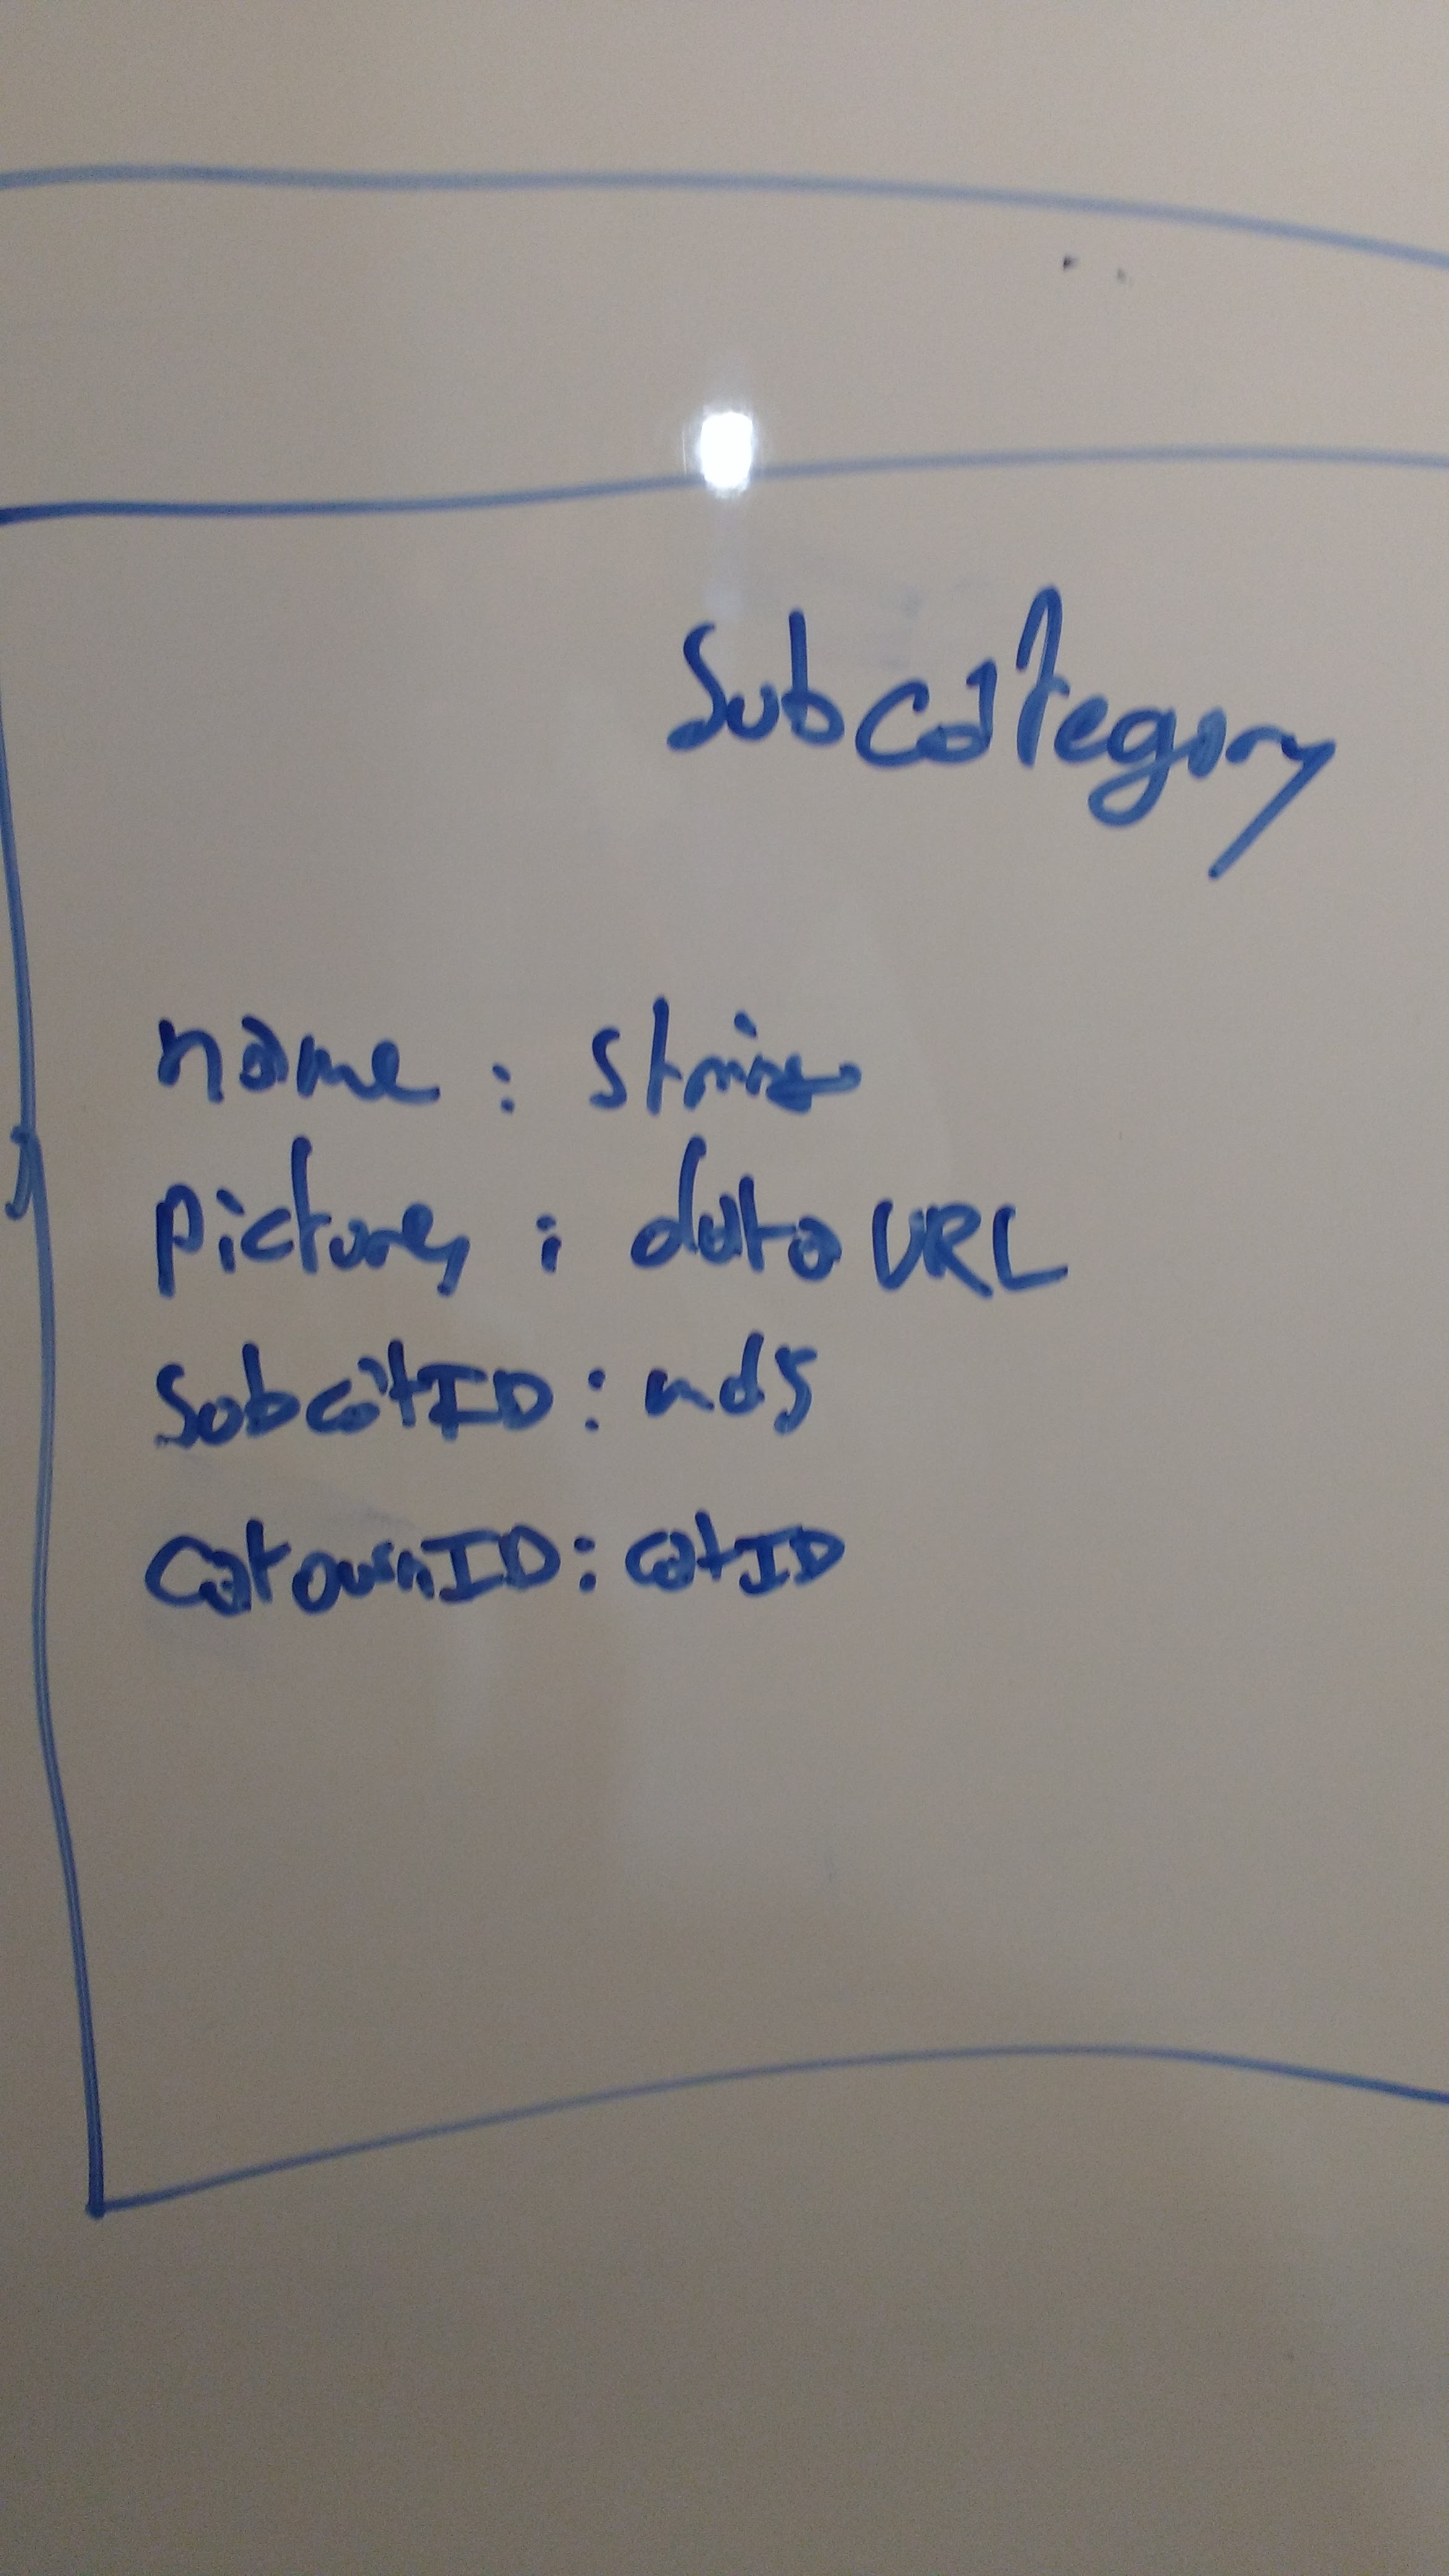 Subcategory
name : String
pictures : dataURL
SubcatID : md5
CatownID : catID